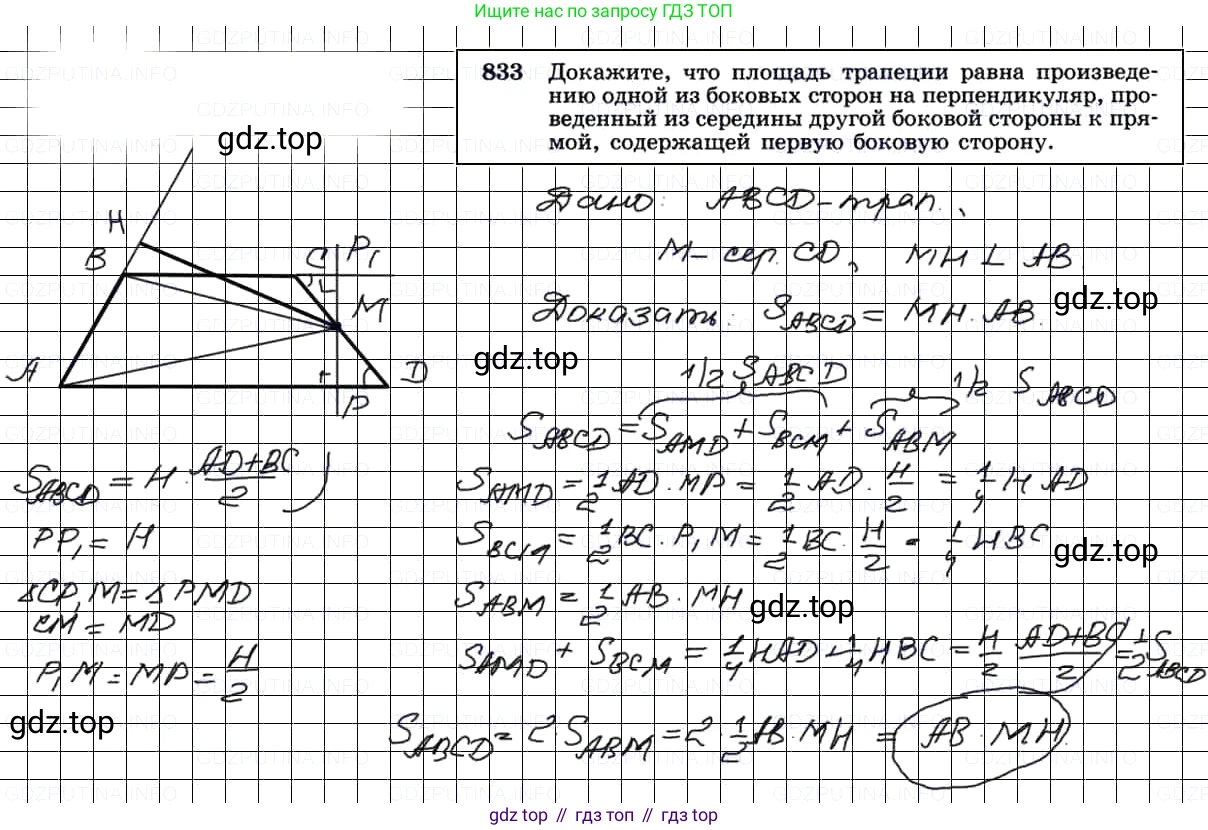 Ищите нас по запросу ГДЗ ТОП
833 Докажите, что площадь трапеции равна произведе-
нию одной из боковых сторон на перпендикуляр, про-
веденный из середины другой боковой стороны к пря-
мой, содержащей первую боковую сторону.
gdz.top
Дано: ABCD – трап.,
M – сер. CD, MH ⊥ AB.
gdz.top
Доказать: S_ABCD = MH · AB.
gdz.top
H
B
C
P₁
M
A
D
P
1/2 S_ABCD
1/2 S_ABCD
S_ABCD = S_AMD + S_BCM + S_ABM
S_ABCD = H · (AD+BC)/2
PP₁ = H
△CP₁M = △PMD
CM = MD
P₁M = MP = H/2
gdz.top
S_AMD = 1/2 AD · MP = 1/2 AD · H/2 = 1/4 H AD
S_BCM = 1/2 BC · P₁M = 1/2 BC · H/2 = 1/4 H BC
gdz.top
S_ABM = 1/2 AB · MH
gdz.top
S_AMD + S_BCM = 1/4 HAD + 1/4 HBC = H/2 (AD+BC)/2 = 1/2 S_ABCD
S_ABCD = 2 · S_ABM = 2 · 1/2 AB · MH = AB · MH.
gdz.top // гдз.топ // gdz.top